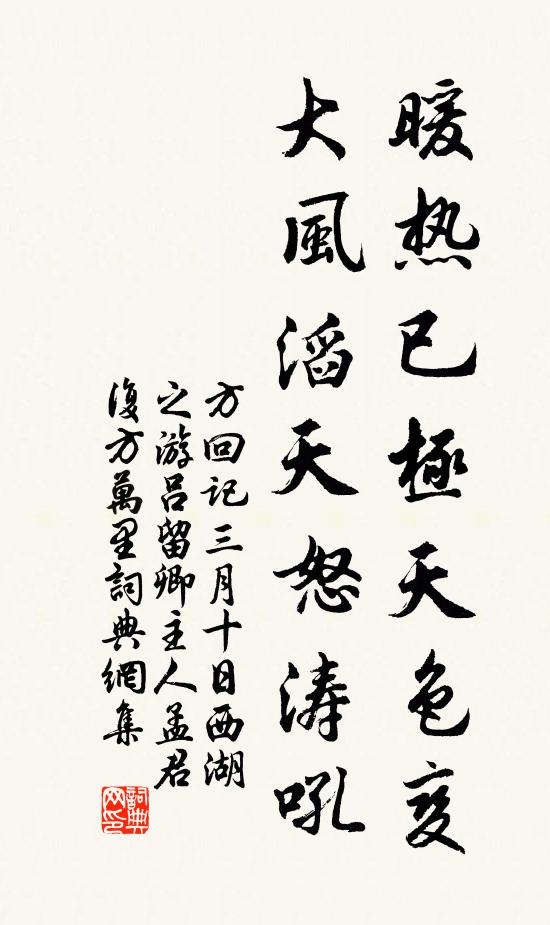 暖热已極天色变
大風滔天怒涛吼
方回记三月十日西湖
之游吕留卿主人孟君
復方萬里詞典網集
詞典
网印